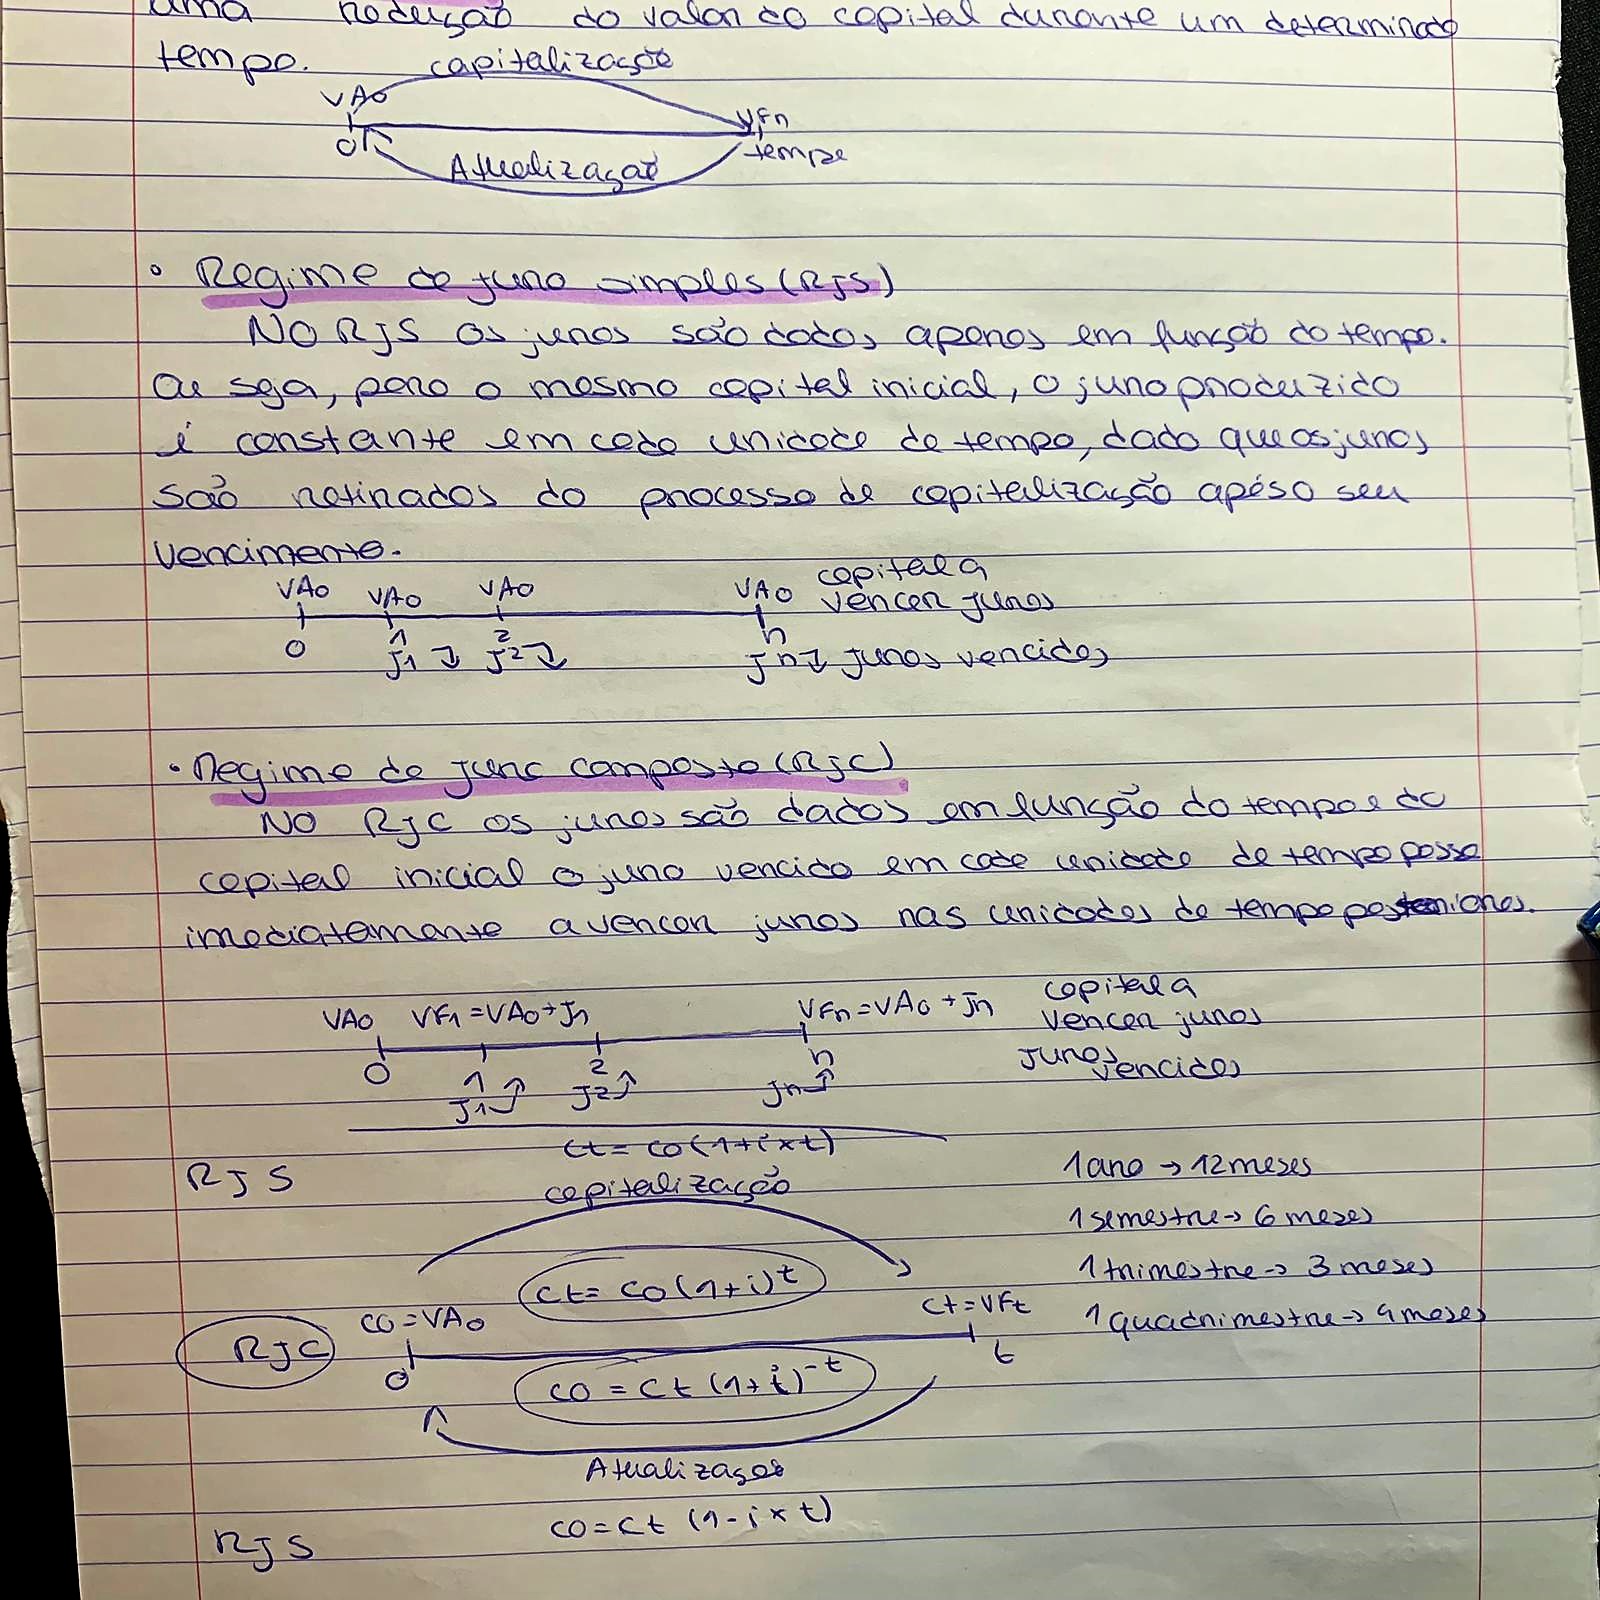 uma redução do valor do capital durante um determinado
tempo. capitalização
VA0 VFn
0 tempo
Atualização
• Regime de juro simples (RJS)
No RJS os juros são dados apenas em função do tempo.
Ou seja, para o mesmo capital inicial, o juro produzido
é constante em cada unidade de tempo, dado que os juros
são retirados do processo de capitalização após o seu
vencimento.
VA0 VA0 VA0 VA0 capital a
vencer juros
0 1 2 n
J1 J2 Jn juros vencidos
• Regime de juro composto (RJC)
No RJC os juros são dados em função do tempo e do
capital inicial o juro vencido em cada unidade de tempo passa
imediatamente a vencer juros nas unidades de tempo posteriores.
VA0 VF1 = VA0 + Jn VFn = VA0 + Jn capital a
vencer juros
0 1 2 n juros
J1 J2 Jn vencidos
Ct = C0 (1 + i × t)
RJS capitalização 1 ano → 12 meses
1 semestre → 6 meses
Ct = C0 (1 + i)^t 1 trimestre → 3 meses
C0 = VA0 Ct = VFt 1 quadrimestre → 4 meses
RJC
0 t
C0 = Ct (1 + i)^-t
Atualização
C0 = Ct (1 - i × t)
RJS